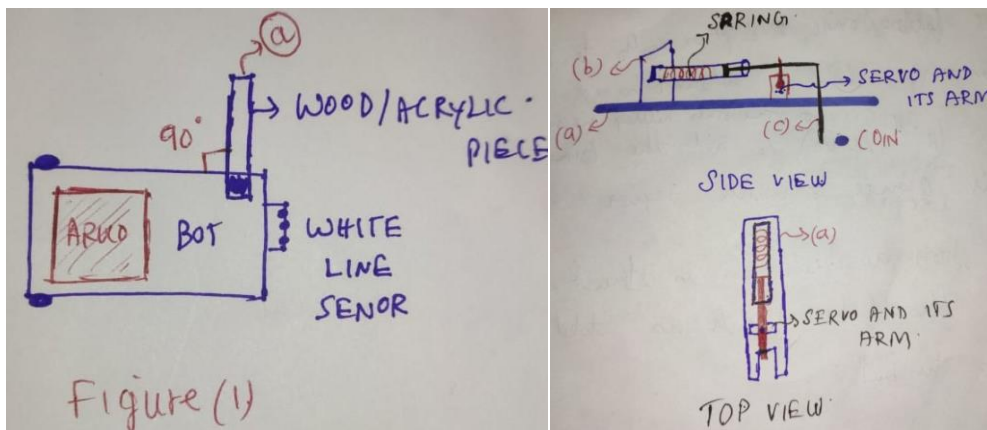 a
WOOD/ACRYLIC
PIECE
90°
ARUCO
BOT
WHITE
LINE
SENOR
Figure (1)
SPRING
(b)
SERVO AND
ITS ARM
(a)
(c)
COIN
SIDE VIEW
(a)
SERVO AND ITS
ARM.
TOP VIEW